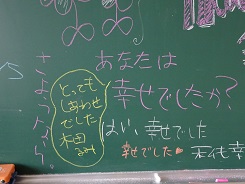 あなたは
幸せでしたか?
はい、幸せでした
幸せでした
天他幸
とっても
しあわせ
でした
木田
るみ
さようなら。